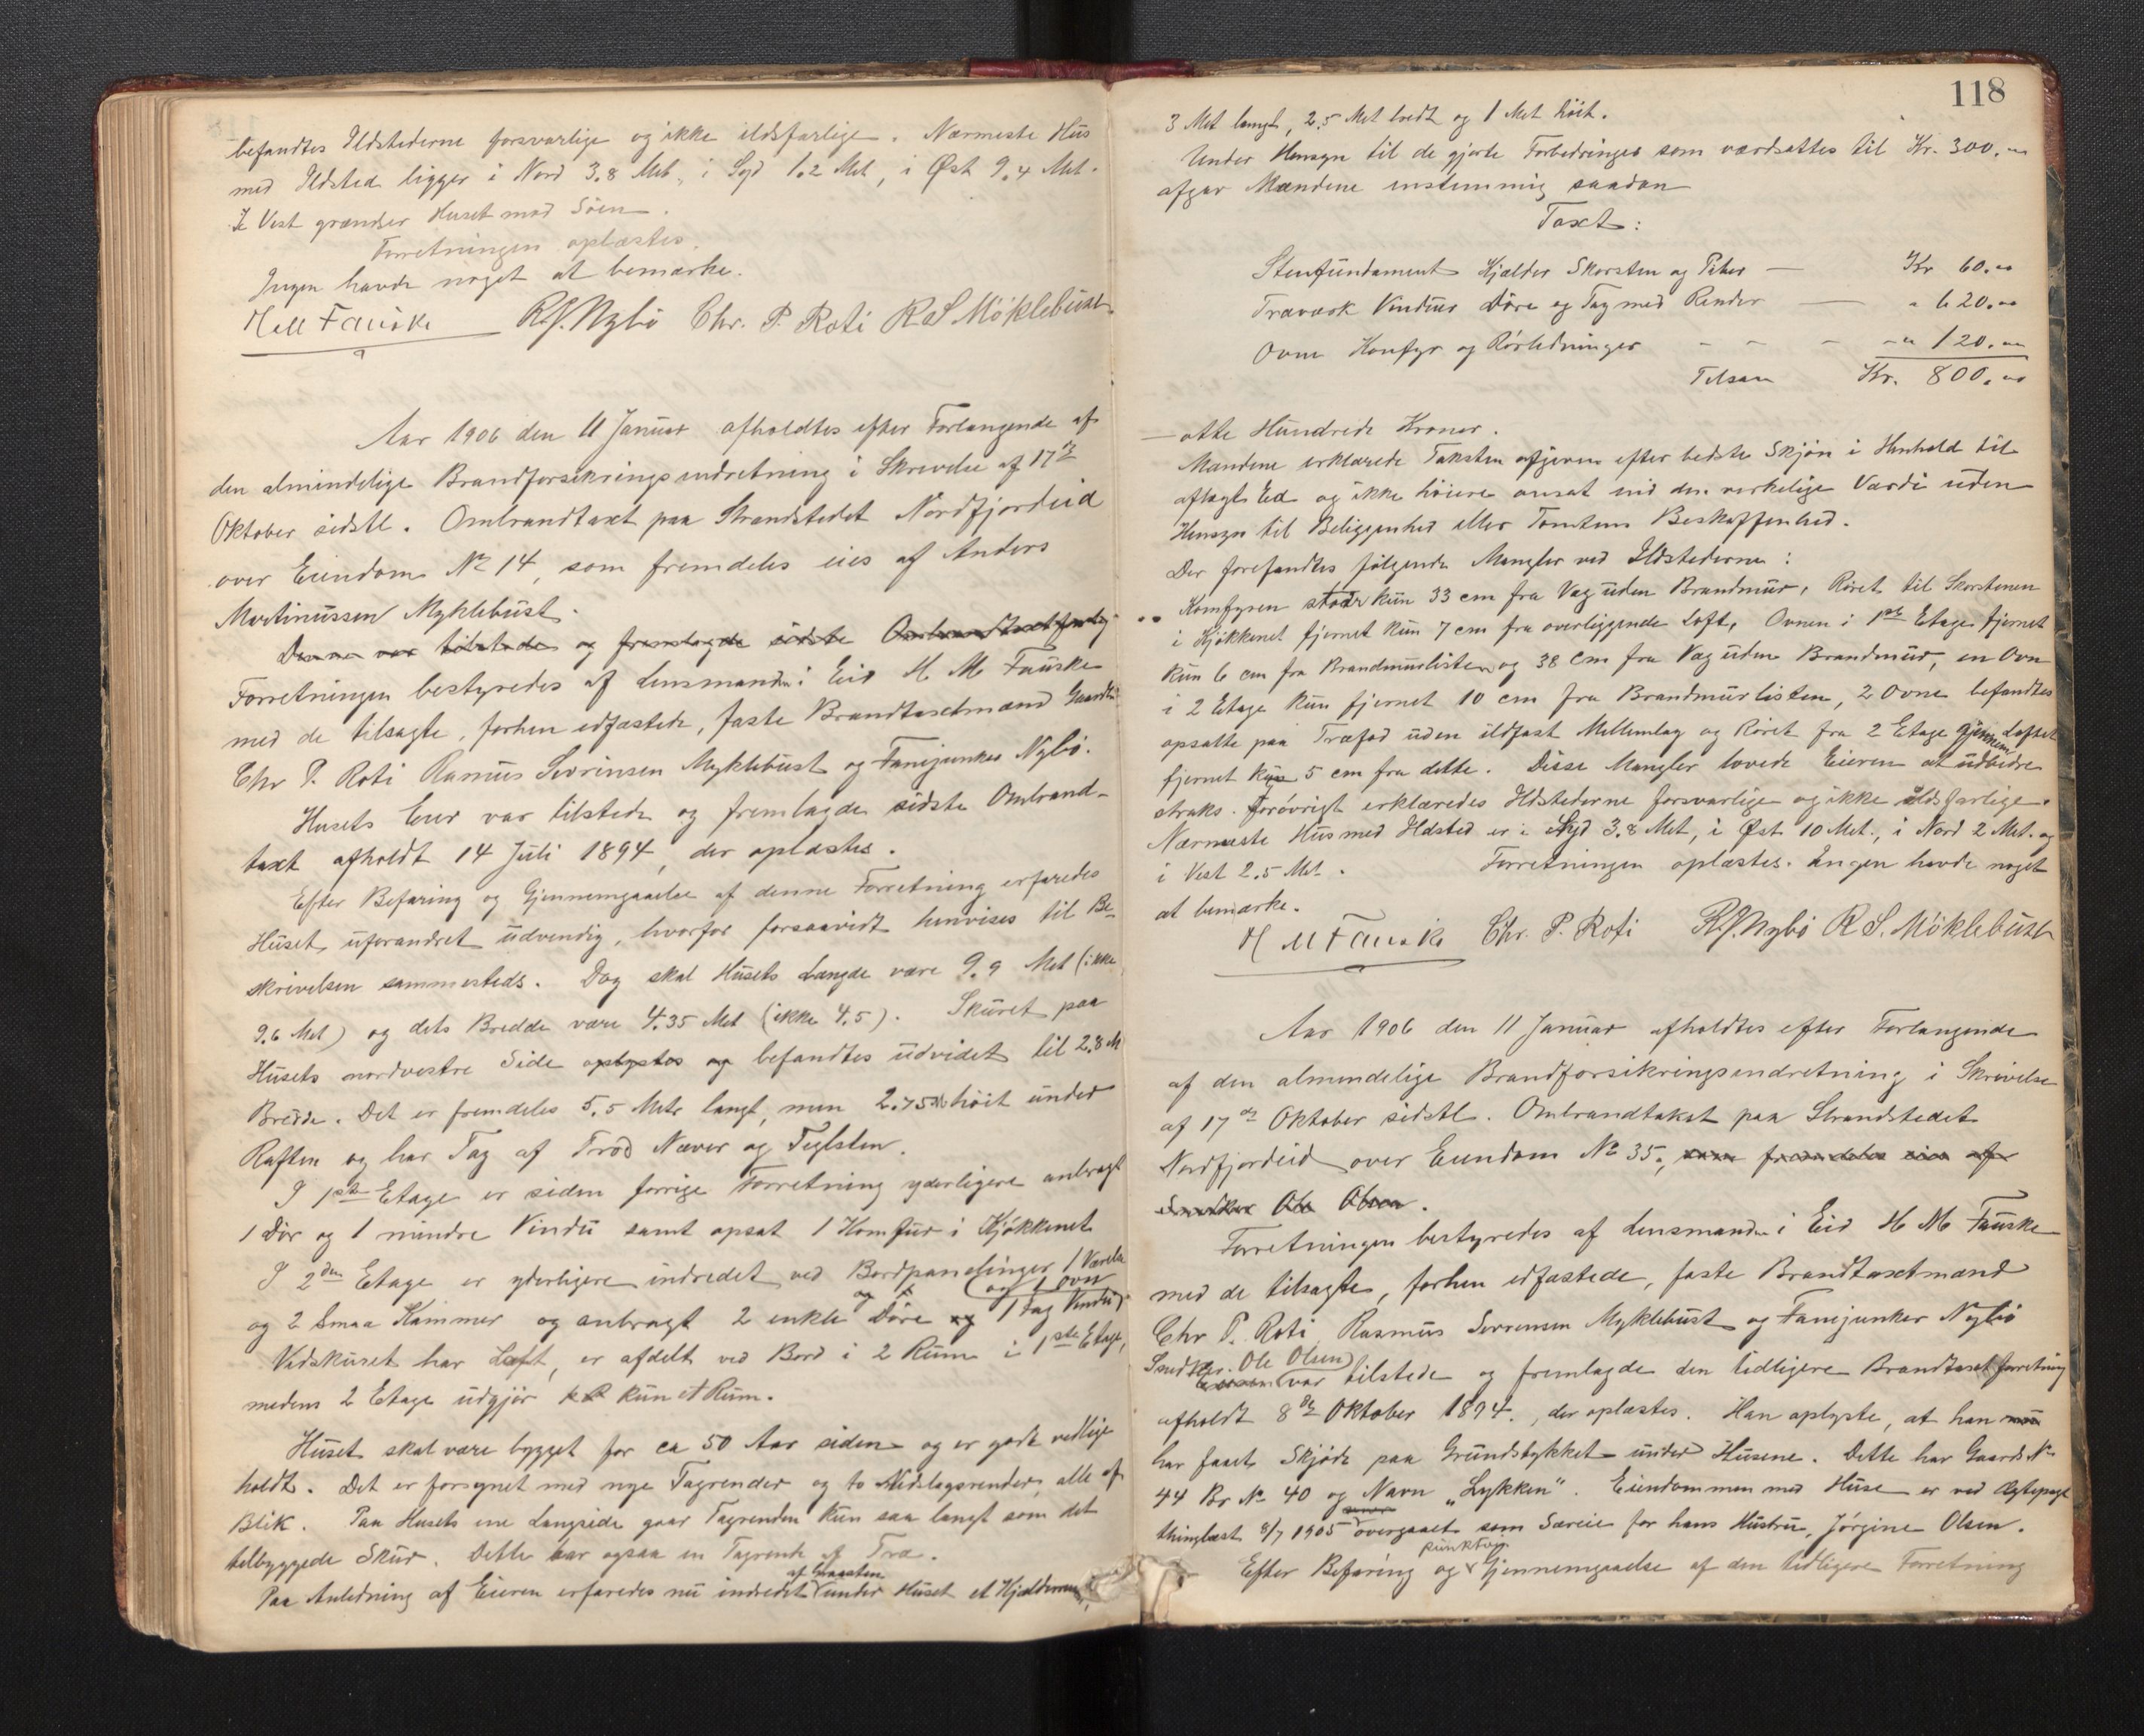 befandtes Ildstederne forsvarlige og ikke ildsfarlige. Nærmeste Hus
med Ildsted ligger i Nord 3.8 Met., i Syd 1.2 Met, i Øst 9.4 Met.
I Vest grændser Huset mod Söen.
Forretningen oplæstes.
Ingen havde noget at bemærke.
H M Fauske R.J. Nybö Chr. P. Roti R S Möklebust
Aar 1906 den 11 Januar afholdtes efter Forlangende af
den almindelige Brandforsikringsindretning i Skrivelse af 17de
Oktober sidstl. Ombrandtaxt paa Strandstedet Nordfjordeid
over Eiendom No 14, som fremdeles eies af Anders
Martinussen Myklebust.
Denne var tilstede og fremlagde sidste Ombrandtaxtforretg
Forretningen bestyredes af Lensmanden i Eid H M Fauske
med de tilsagte, forhen edfæstede, faste Brandtaxtmænd Gaardbr
Chr P. Roti Rasmus Severinsen Myklebust og Fanejunker Nybö.
Husets Eier var tilstede og fremlagde sidste Ombrand-
taxt afholdt 14 Juli 1894, der oplæstes.
Efter Befaring og Gjennemgaaelse af denne Forretning erfaredes
Huset uforandret udvendig, hvorfor forsaavidt henvises til Be-
skrivelsen sammesteds. Dog skal Husets Længde være 9.9 Met (ikke
9.6 Met) og dets Bredde være 4.35 Met (ikke 4.5). Skuret paa
Husets nordvestre Side oplystes og befandtes udvidet til 2.8 M
Bredde. Det er fremdeles 5.5 Metr langt, men 2.75 M höit under
Raften og har Tag af Trod Næver og Teglsten.
I 1ste Etage er siden forrige Forretning yderligere anbragt
1 Dör og 1 mindre Vindu samt opsat 1 Komfur i Kjökkenet
I 2den Etage er yderligere indredet ved Bordpanelinger 1 Værelse
og 1 ovn
og 2 Smaa Kammer og anbragt 2 enkle Döre og 1 fag Vindu
Vedskuret har Loft, er afdelt ved Bord i 2 Rum i 1ste Etage,
medens 2 Etage udgjör kun et Rum.
Huset skal være bygget for ca 50 Aar siden og er godt vedlige
holdt. Det er forsynet med nye Tagrender og to Nedslagsrender, alle af
Blik. Paa Husets ene Langside gaar Tagrenden kun saa langt som det
tilbyggede Skur. Dette har ogsaa en Tagrende af Træ.
af Graasten
Paa Anledning af Eieren erfaredes nu indredet under Huset et Kjælderrum,
118
3 Met langt, 2.5 Met bredt og 1 Met höit.
Under Hensyn til de gjorte Forbedringer som værdsættes til Kr. 300.00
afgav Mændene enstemmig saadan
Taxt:
Stenfundament Kjælder Skorsten og Piber — Kr 60.00
Træværk Vinduer Döre og Tag med Render — " 620.00
Ovne Komfyr og Rörledninger - - - - " 120.00
Tilsam Kr. 800.00
— otte Hundrede Kroner.
Mændene erklærede Taksten afgiven efter bedste Skjön i Henhold til
aflagt Ed og ikke höiere ansat end den virkelige Værdi uden
Hensyn til Beliggenhed eller Tomtens Beskaffenhed.
Der forefandtes fölgende Mangler ved Ildstederne:
Komfyren staar kun 33 cm fra Væg uden Brandmur, Röret til Skorstenen
i Kjökkenet fjernet kun 7 cm fra overliggende Loft, Ovnen i 1ste Etage fjernet
kun 6 cm fra Brandmurlisten og 38 cm fra Væg uden Brandmur, en Ovn
i 2 Etage kun fjernet 10 cm fra Brandmurlisten, 2 Ovne befandtes
opsatte paa Træfod uden ildfast Mellemlag og Röret fra 2 Etage gjennem Loftet
fjernet kun 5 cm fra dette. Disse Mangler lovede Eieren at udbedre
straks. Foröv­rigt erklæredes Ildstederne forsvarlige og ikke ildsfarlige.
Nærmeste Hus med Ildsted er i Syd 3.8 Met, i Øst 10 Met., i Nord 2 Met. og
i Vest 2.5 Met. Forretningen oplæstes. Ingen havde noget
at bemærke.
H M Fauske Chr. P. Roti R.J. Nybö R S. Möklebust
Aar 1906 den 11 Januar afholdtes efter Forlangende
af den almindelige Brandforsikringsindretning i Skrivelse
af 17de Oktober sidstl. Ombrandtakst paa Strandstedet
Nordfjordeid over Eiendom No 35., som fremdeles eies af
Snedker Ole Olsen.
Forretningen bestyredes af Lensmanden i Eid H M Fauske
med de tilsagte, forhen edfæstede, faste Brandtaxtmænd
Chr P. Roti, Rasmus Severinsen Myklebust og Fanejunker Nybö
Snedker Ole Olsen
Eieren var tilstede og fremlagde den tidligere Brandtaxtforretning
afholdt 8de Oktober 1894., der oplæstes. Han oplyste, at han nu
har faaet Skjöde paa Grundstykket under Husene. Dette har Gaards No
44 Br No 40 og Navn „Lykken". Eiendommen med Huse er ved Ægtepagt
thinglæst 8/7 1905 overgaaet som Særeie for hans Hustru, Jörgine Olsen.
punktvis
Efter Befaring og Gjennemgaaelse af den tidligere Forretning